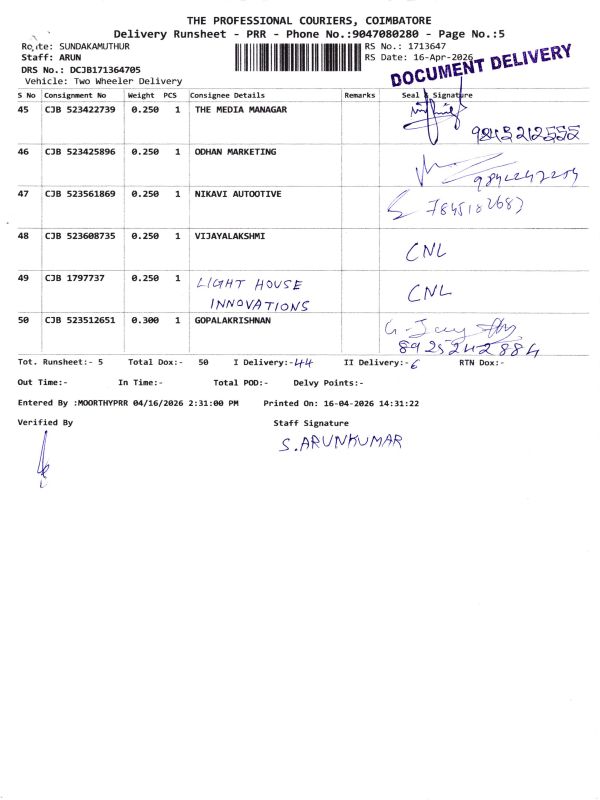 THE PROFESSIONAL COURIERS, COIMBATORE
Delivery Runsheet - PRR - Phone No.:9047080280 - Page No.:5
Route: SUNDAKAMUTHUR
RS No.: 1713647
Staff: ARUN
RS Date: 16-Apr-2026
DOCUMENT DELIVERY
DRS No.: DCJB171364705
Vehicle: Two Wheeler Delivery
S No Consignment No Weight PCS Consignee Details Remarks Seal & Signature
45 CJB 523422739 0.250 1 THE MEDIA MANAGAR
9843212555
46 CJB 523425896 0.250 1 ODHAN MARKETING
47 CJB 523561869 0.250 1 NIKAVI AUTOOTIVE
48 CJB 523608735 0.250 1 VIJAYALAKSHMI CNL
49 CJB 1797737 0.250 1 LIGHT HOUSE
INNOVATIONS CNL
50 CJB 523512651 0.300 1 GOPALAKRISHNAN
8925242884
Tot. Runsheet:- 5 Total Dox:- 50 I Delivery:-44 II Delivery:-6 RTN Dox:-
Out Time:- In Time:- Total POD:- Delvy Points:-
Entered By :MOORTHYPRR 04/16/2026 2:31:00 PM Printed On: 16-04-2026 14:31:22
Verified By Staff Signature
S.ARUNKUMAR